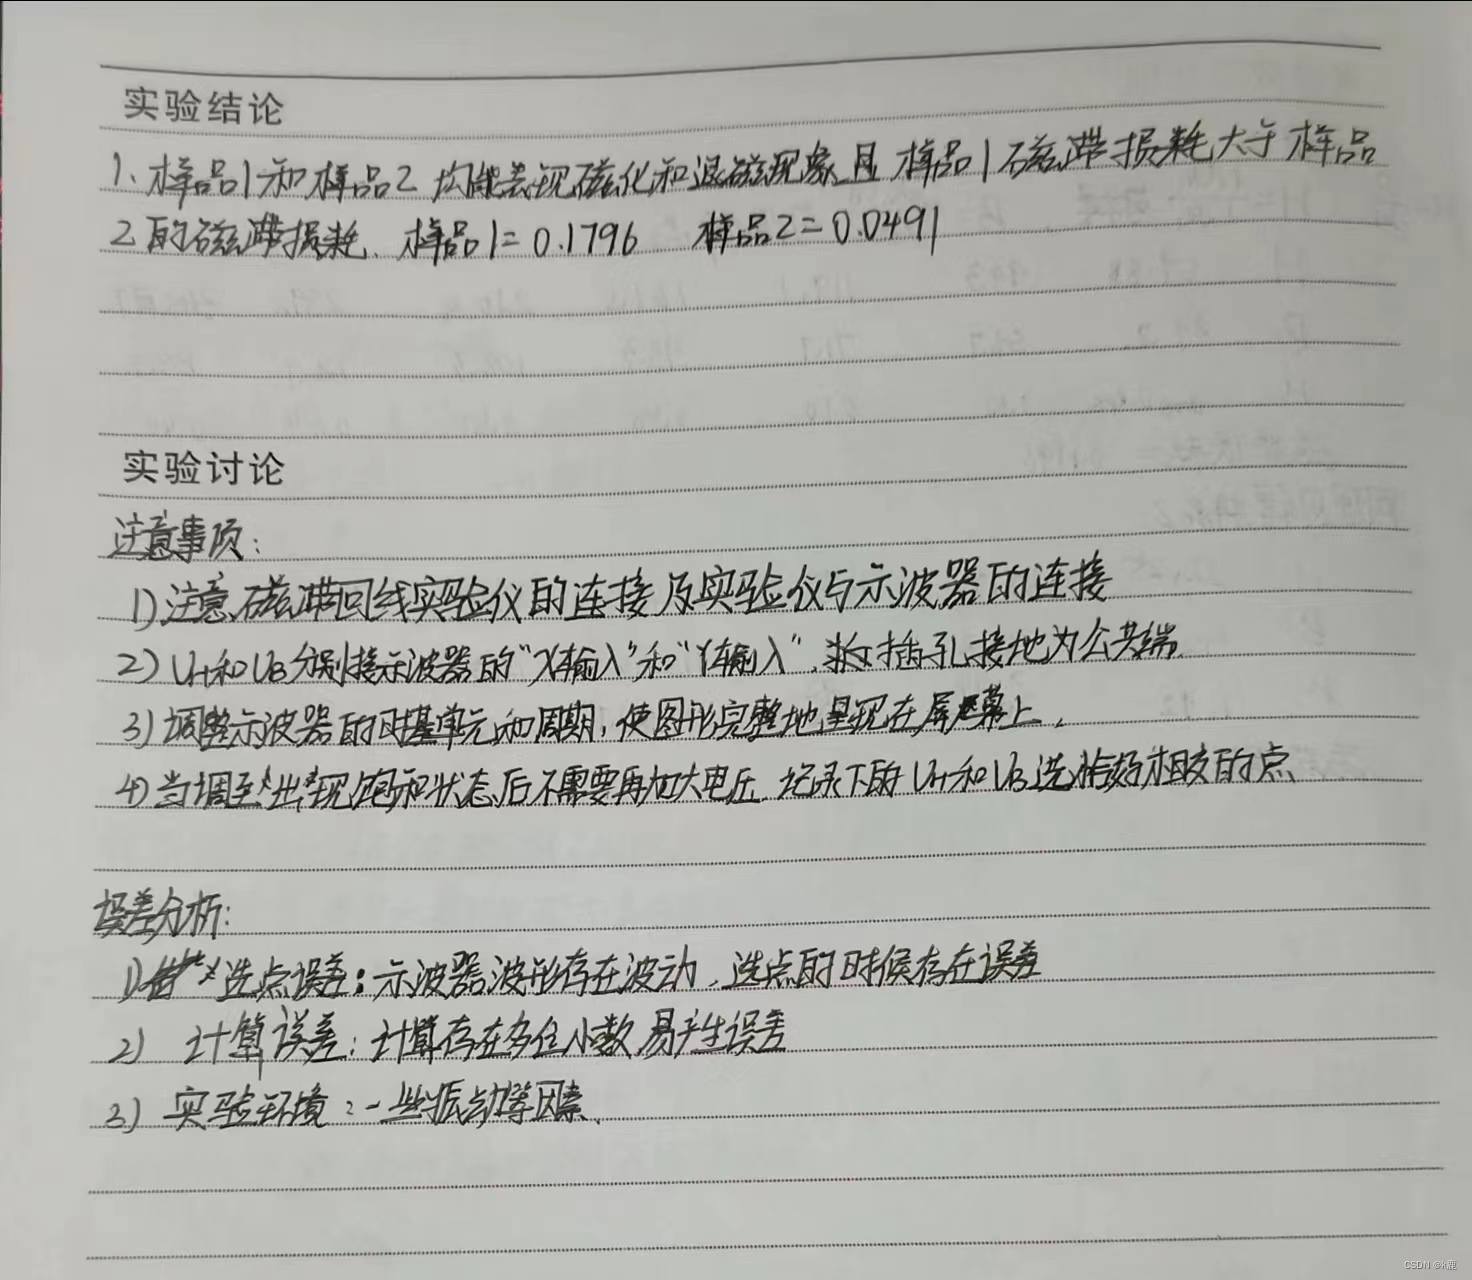 实验结论
1、样品1和样品2 均能表现磁化和退磁现象且 样品1磁滞损耗大于 样品
2的磁滞损耗. 样品1=0.1796 样品2=0.0491
实验讨论
注意事项:
1)注意磁滞回线实验仪的连接及实验仪与示波器的连接
2) UH和UB分别接示波器的"X输入"和"Y输入", 插孔接地为公共端.
3)调整示波器的时基单元和周期,使图形完整地呈现在屏幕上.
4)当调至出现饱和状态后不需要再加大电压 记录下的UH和UB选恰好相交的点
误差分析:
1) 选点误差:示波器波形存在波动,选点的时候存在误差
2) 计算误差:计算存在多位小数易产生误差
3) 实验环境:一些振动等因素.
CSDN @k鹿